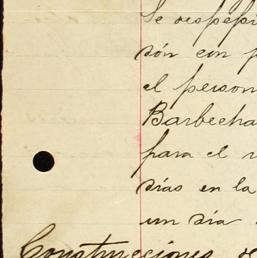 Se despepi
són con p
el person
Barbecha
para el r
días en la
un día
Construcciones de